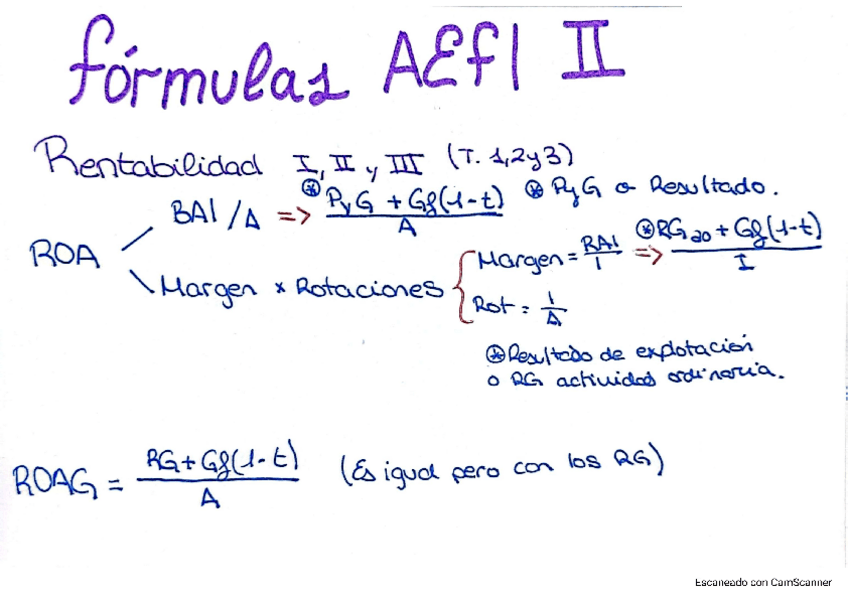 fórmulas AEfI II
Rentabilidad I, II y III (T. 1, 2 y 3)
ROA
BAI / A => ⊛ PyG + Gf(1-t) / A
⊛ PyG o Resultado.
Margen x Rotaciones
Margen = BAI / I => ⊛ RG ao + Gf(1-t) / I
Rot = I / A
⊛ Resultado de explotación
o RG actividad ordinaria.
ROAG = RG + Gf(1-t) / A (Es igual pero con los RG)
Escaneado con CamScanner